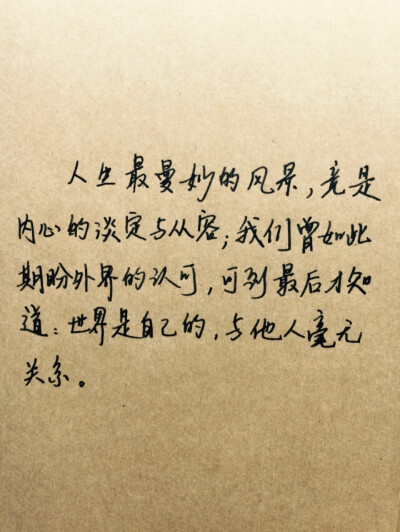 人生最曼妙的风景，竟是
内心的淡定与从容；我们曾如此
期盼外界的认可，可到最后才知
道：世界是自己的，与他人毫无
关系。